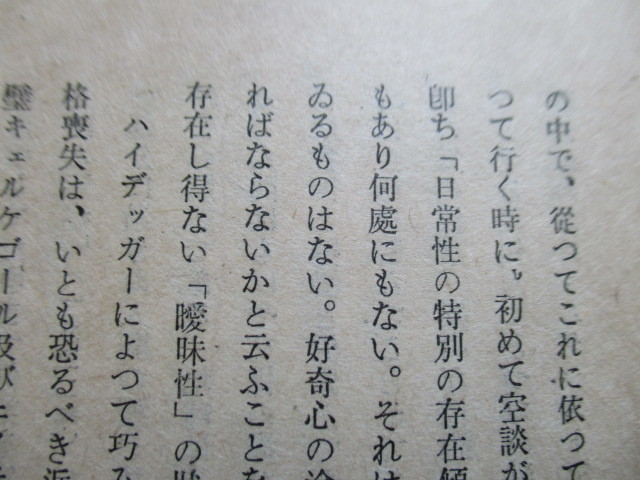 の中で、從つてこれに依つて
つて行く時に、初めて空談が
卽ち「日常性の特別の存在傾
もあり何處にもない。それは
ゐるものはない。好奇心の
ればならないかと云ふことを
存在し得ない「曖昧性」の
ハイデッガーによつて巧み
格喪失は、いとも恐るべき
璧キェルケゴール及び